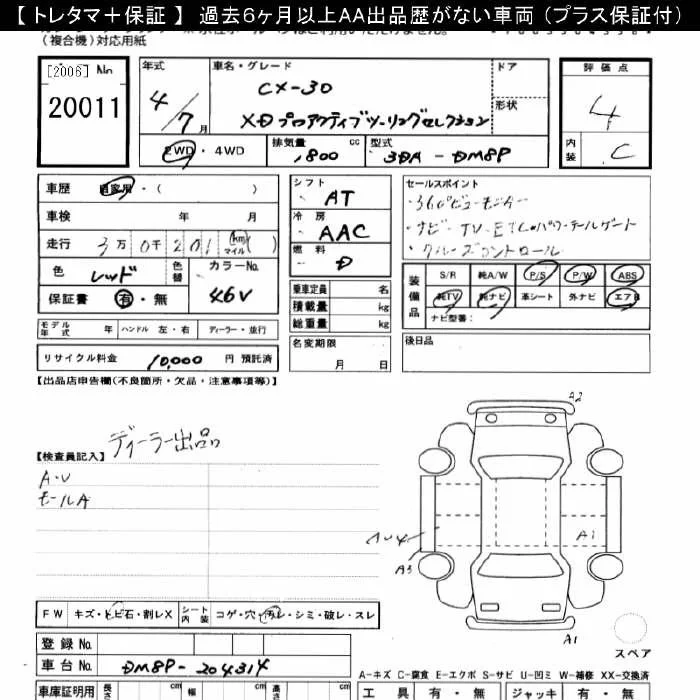 【 トレタマ＋保証 】 過去6ヶ月以上AA出品歴がない車両 (プラス保証付)
(複合機)対応用紙
[2006] No
20011
年式
4/7月
車名・グレード
CX-30
XD プロアクティブツーリングセレクション
ドア
形状
2WD・4WD
排気量
1,800 cc
型式
3DA - DM8P
評価点
4
内装
C
車歴 自家用・( )
車検 年 月
走行 3万0千201 (km) マイル ( )
色 レッド 色替 カラーNo. 46V
保証書 有・無
シフト
AT
冷房
AAC
燃料
D
乗車定員 名
積載量 kg
総重量 kg
セールスポイント
・360°ビューモニター
・ナビ・TV・ETC・パワーテールゲート
・クルーズコントロール
装備品
S/R 純A/W P/S P/W ABS
純TV 純ナビ 革シート 外ナビ エアB
ナビ型番:
モデル年式 年 ハンドル 左・右 ディーラー・並行
名変期限
月 日
後日品
リサイクル料金 10,000 円 預託済
【出品店申告欄(不良箇所・欠品・注意事項等)】
ディーラー出品
【検査員記入】
A・U
モールA
A2
A1
A3
A1
F W キズ・トビ石・割レX シート内装 コゲ・穴・汚レ・シミ・破レ・スレ
スペア
登録 No.
車台 No. DM8P-204314
A-キズ C-腐食 E-エクボ S-サビ U-凹ミ W-補修 XX-交換済
車庫証明用 長さ cm 幅 cm 高さ cm
工具 有・無 ジャッキ 有・無